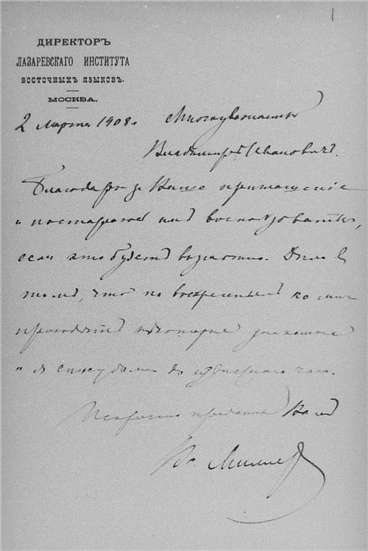 1
ДИРЕКТОРЪ
ЛАЗАРЕВСКАГО ИНСТИТУТА
ВОСТОЧНЫХЪ ЯЗЫКОВЪ.
МОСКВА.
2 Марта 1908 г. Многоуважаемый
Владимиръ Ивановичъ.
Благодарю за Ваше приглашеніе
и постараюсь имъ воспользоваться,
если это будетъ возможно. Дѣло въ
томъ, что по воскресеньямъ ко мнѣ
приходятъ некоторые знакомые
и я сижу дома до
Искренно преданный Вамъ
Вс. Миллеръ